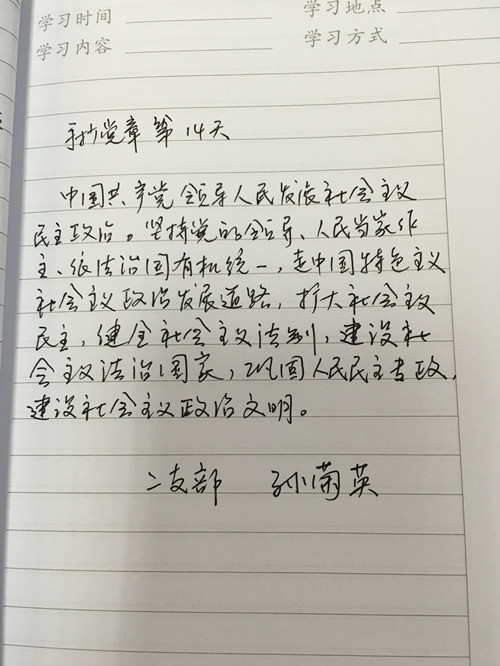 学习时间
学习地点
学习内容
学习方式
手抄党章第14天
中国共产党领导人民发展社会主义
民主政治。坚持党的领导、人民当家作
主、依法治国有机统一,走中国特色主义
社会主义政治发展道路,扩大社会主义
民主,健全社会主义法制,建设社
会主义法治国家,巩固人民民主专政,
建设社会主义政治文明。
二支部 孙菊英